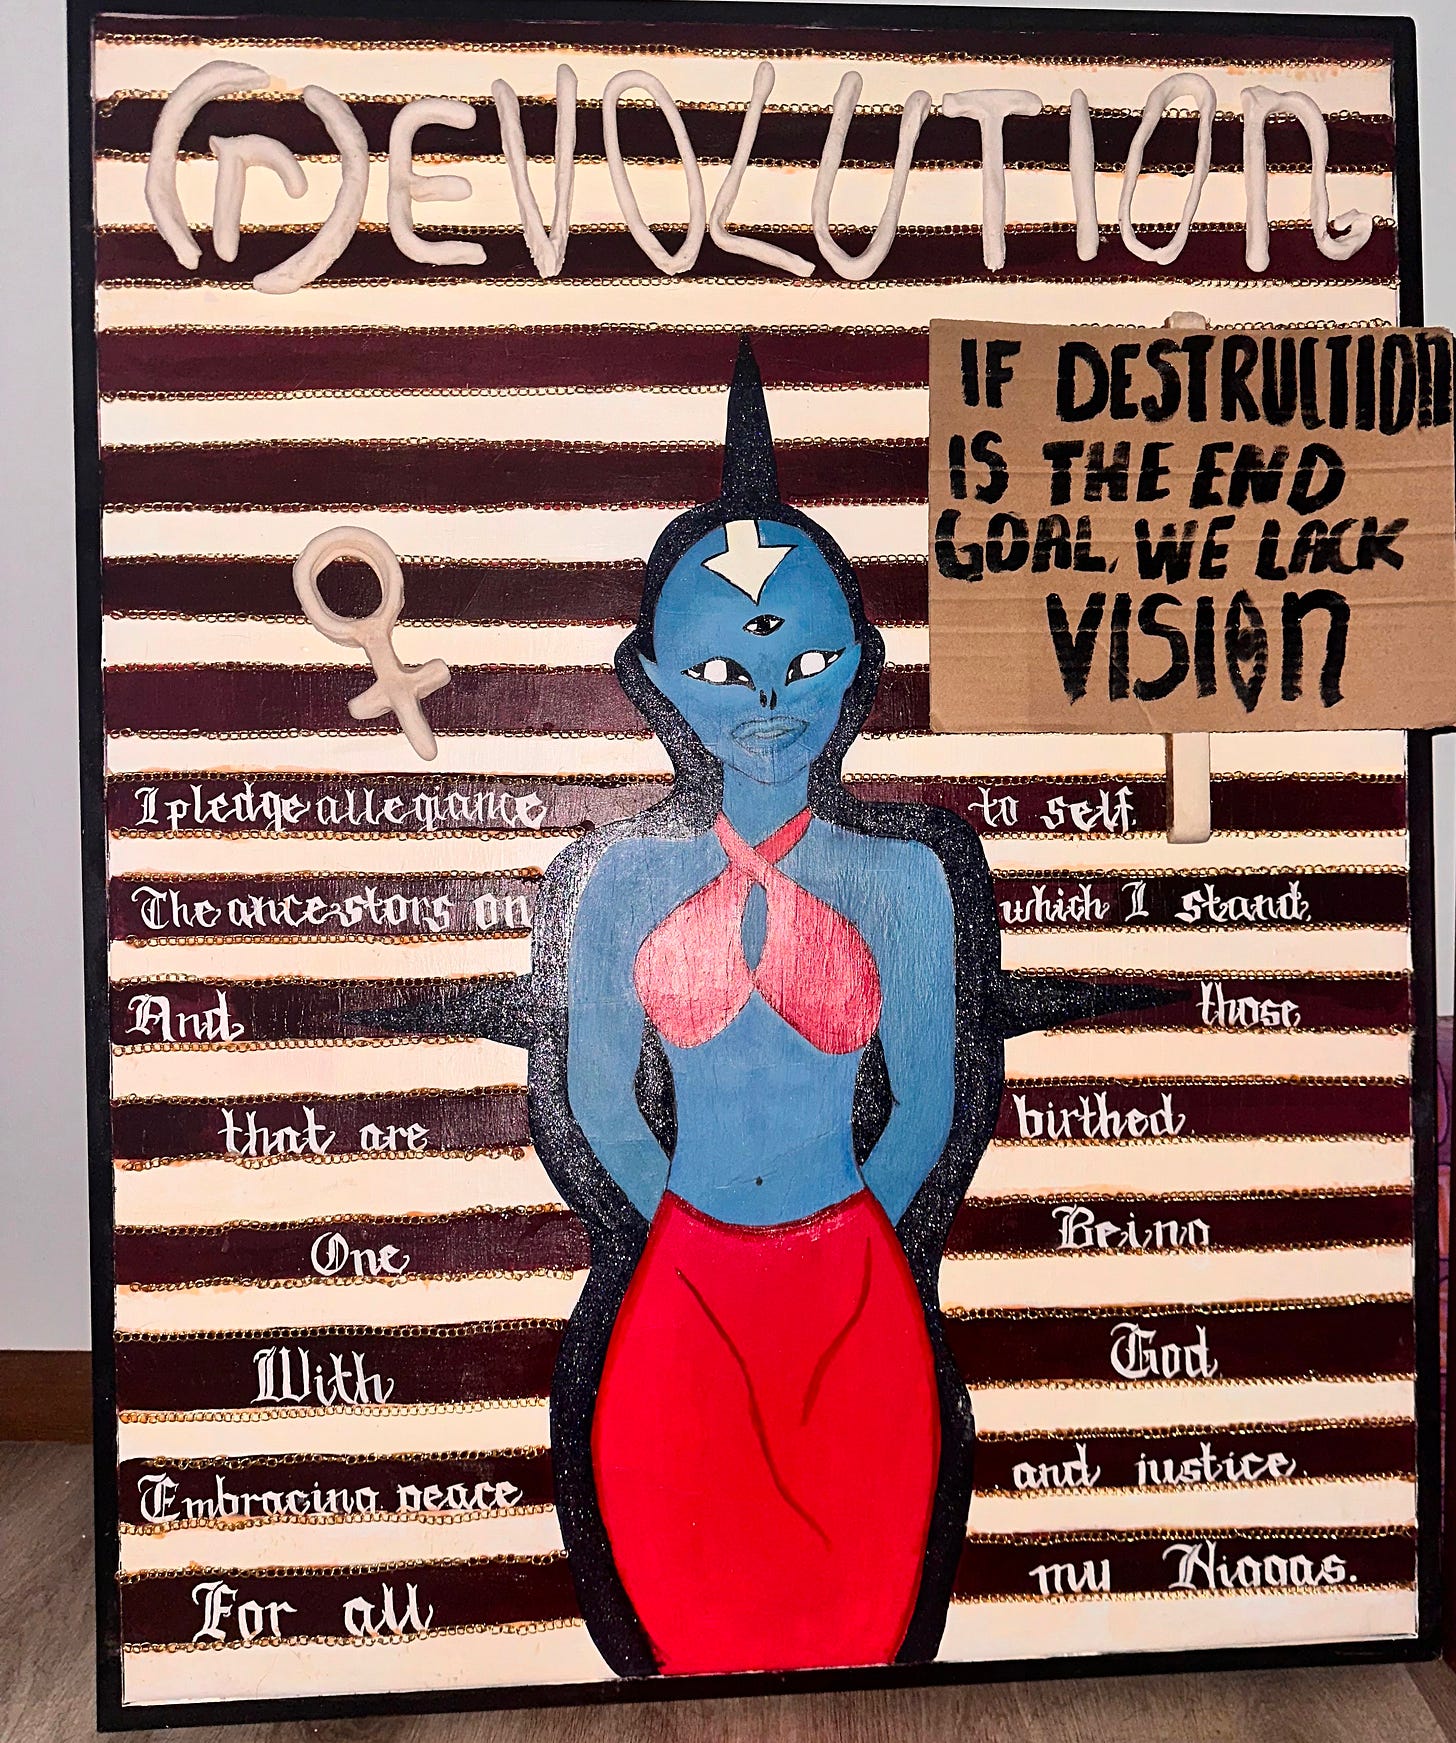 (r)EVOLUTION
IF DESTRUCTION
IS THE END
GOAL, WE LACK
VISION
I pledge allegiance to self.
The ancestors on which I stand,
And those
that are birthed.
One Being
With God,
Embracing peace and justice.
For all my Niggas.